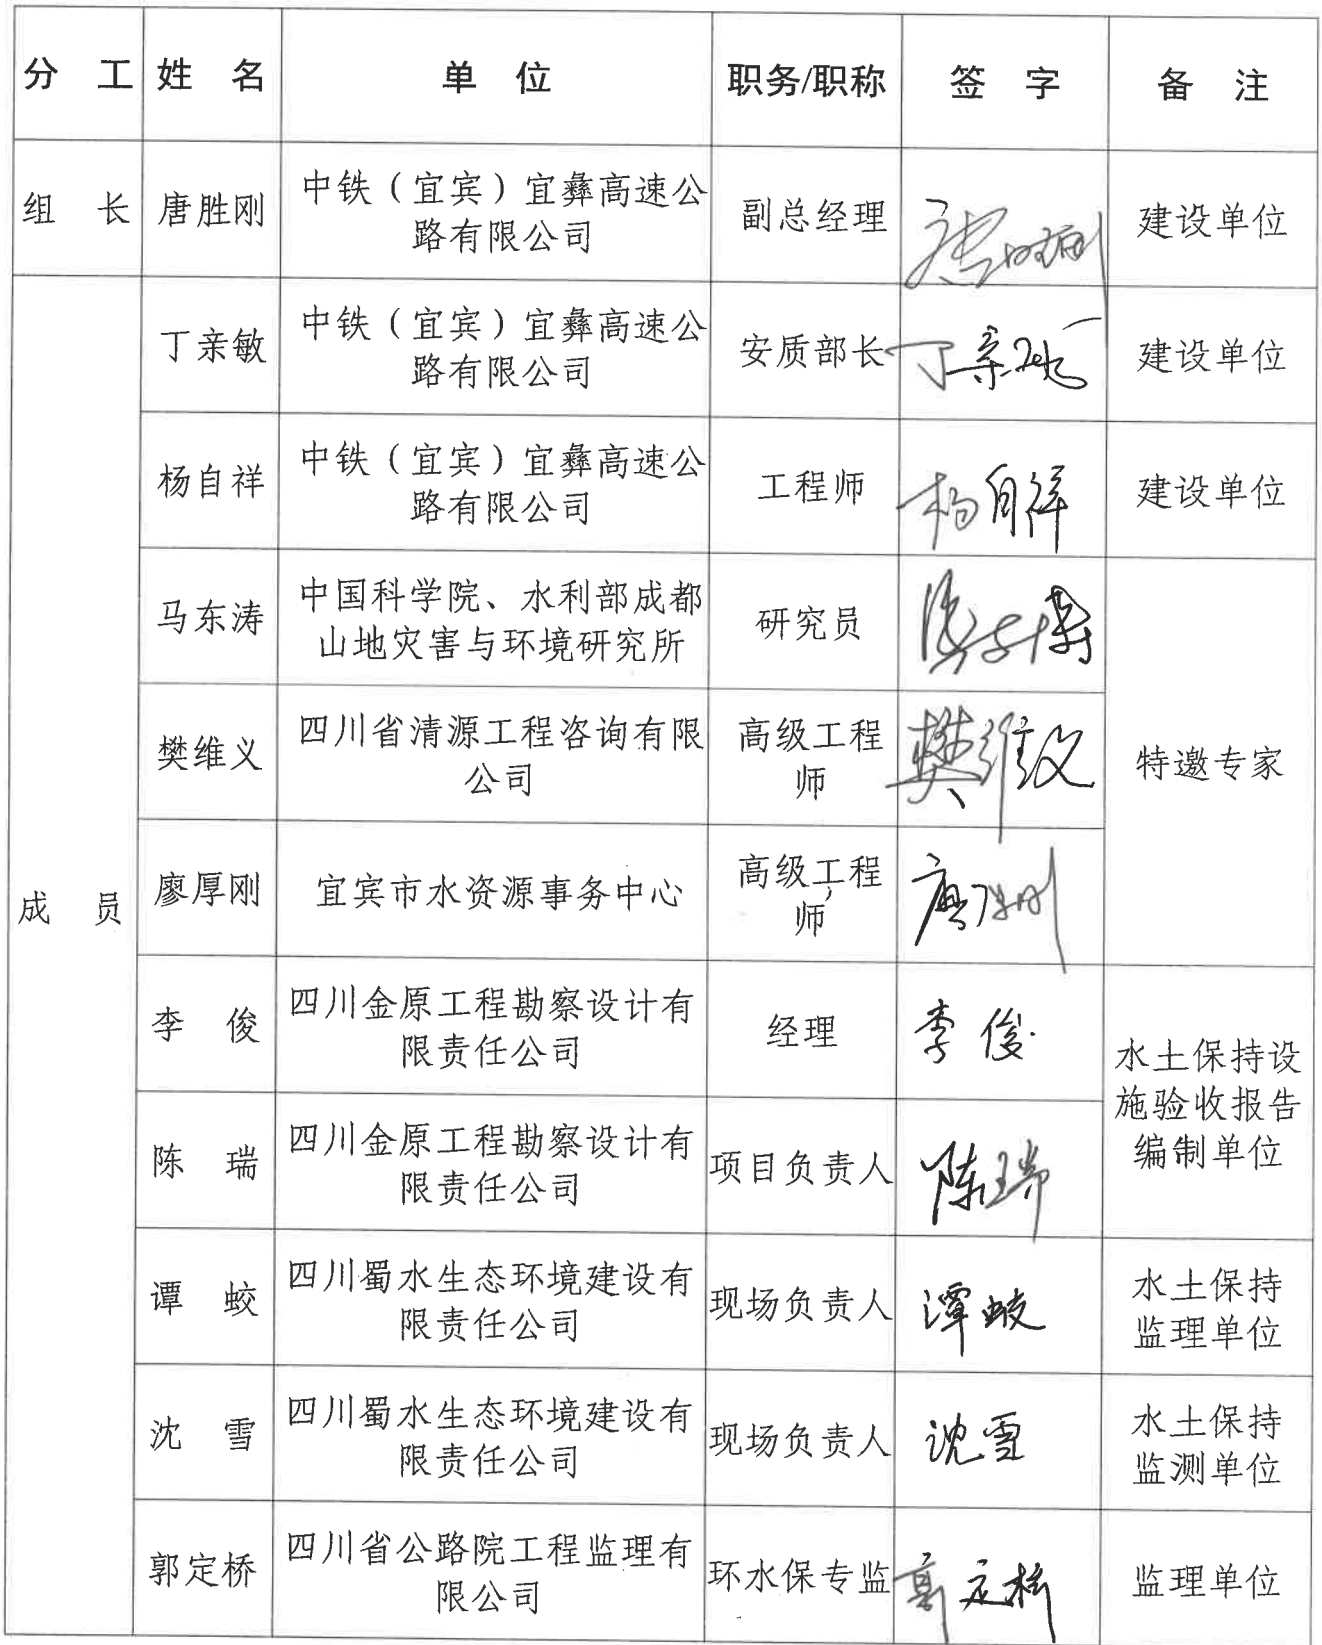 分 工 姓 名 单 位 职务/职称 签 字 备 注
组 长 唐胜刚 中铁（宜宾）宜彝高速公
路有限公司 副总经理 唐胜刚 建设单位
成 员
丁亲敏 中铁（宜宾）宜彝高速公
路有限公司 安质部长 丁亲敏 建设单位
杨自祥 中铁（宜宾）宜彝高速公
路有限公司 工程师 杨自祥 建设单位
马东涛 中国科学院、水利部成都
山地灾害与环境研究所 研究员
特邀专家
樊维义 四川省清源工程咨询有限
公司 高级工程
师 樊维义
廖厚刚 宜宾市水资源事务中心 高级工程
师 廖厚刚
李 俊 四川金原工程勘察设计有
限责任公司 经理 李俊
水土保持设
施验收报告
编制单位
陈 瑞 四川金原工程勘察设计有
限责任公司 项目负责人 陈瑞
谭 蛟 四川蜀水生态环境建设有
限责任公司 现场负责人 谭蛟 水土保持
监理单位
沈 雪 四川蜀水生态环境建设有
限责任公司 现场负责人 沈雪 水土保持
监测单位
郭定桥 四川省公路院工程监理有
限公司 环水保专监 郭定桥 监理单位